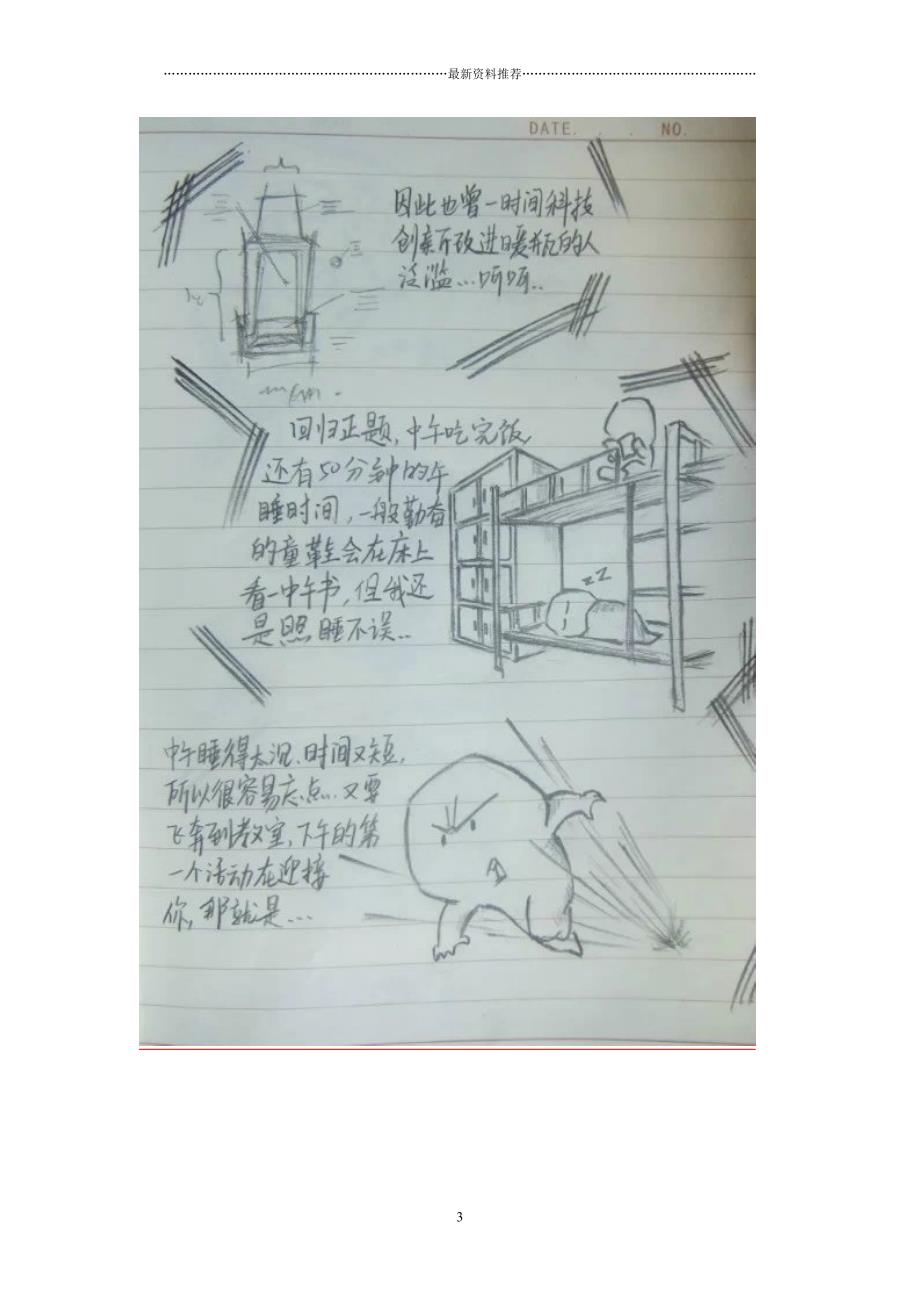 ………………………………………………………………最新资料推荐……………………………………………………
DATE. . . NO.
因此也曾一时间科技
创新所改进暖瓶的人
泛滥…呵呵..
回归正题,中午吃完饭,
还有50分钟的午
睡时间,一般勤奋
的童鞋会在床上
看一中午书,但我还
是照睡不误..
zz
中午睡得太沉、时间又短,
所以很容易忘点…又要
飞奔到教室,下午的第
一个活动在迎接
你,那就是…
3